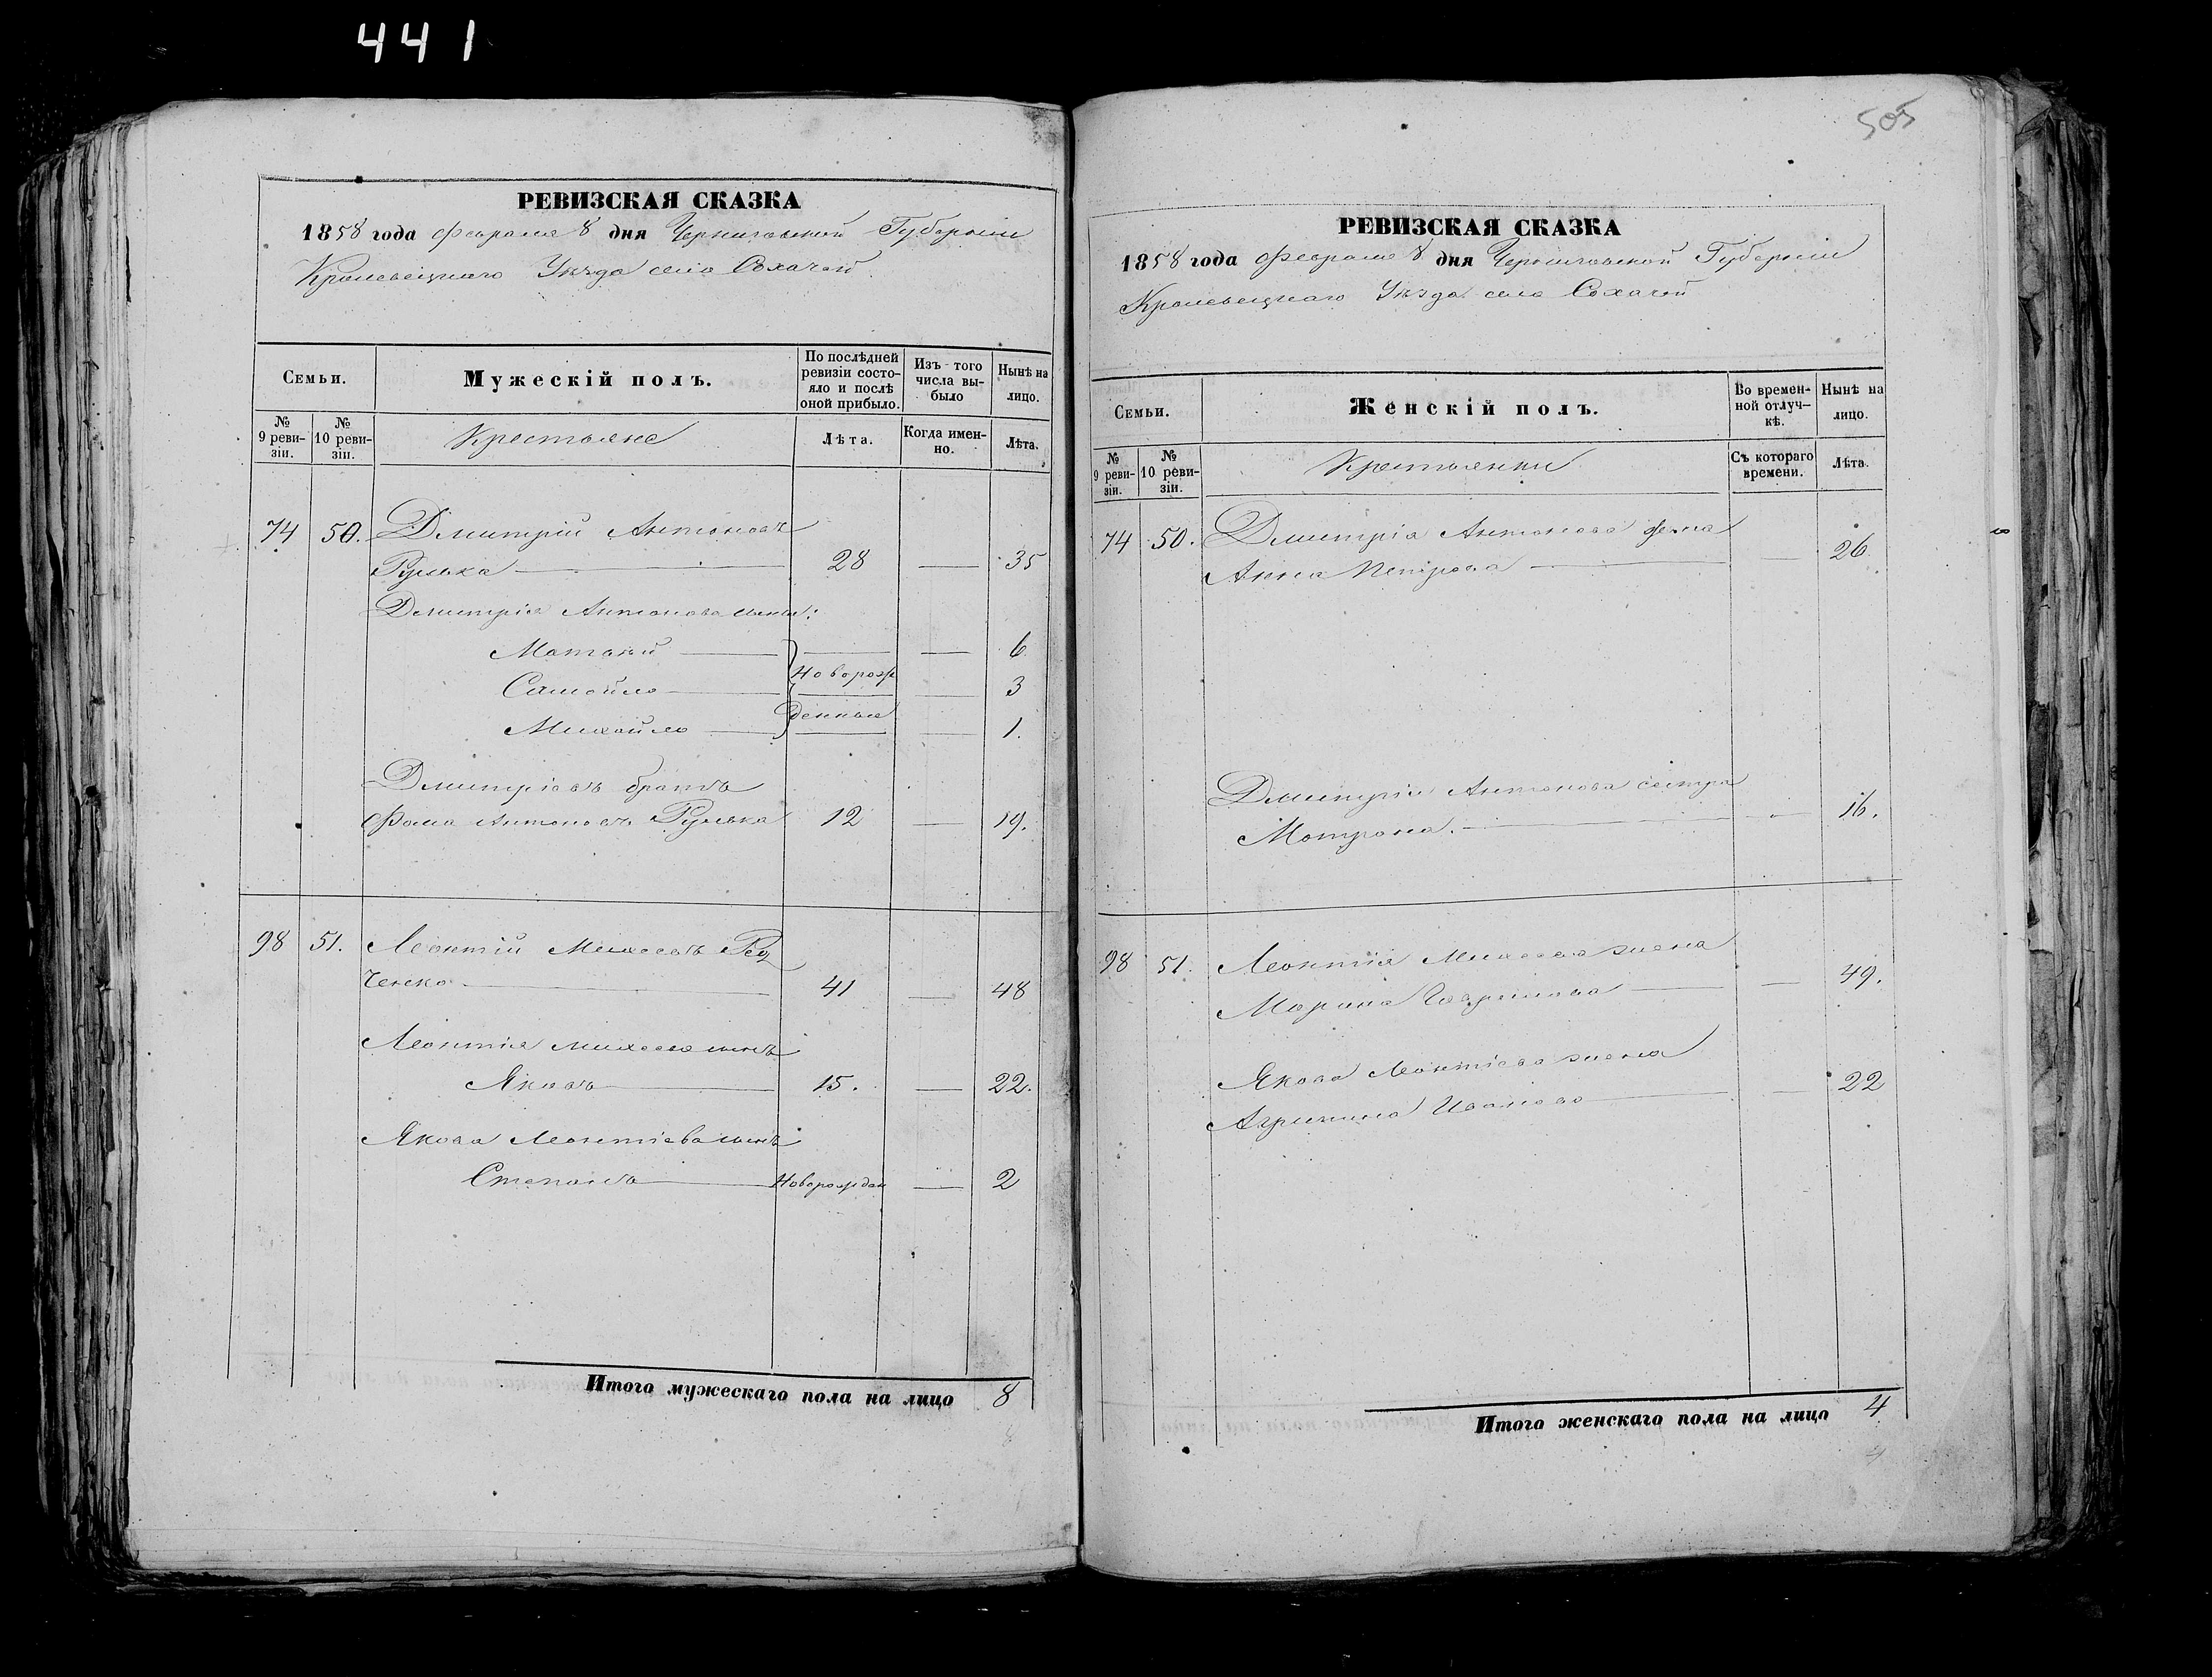 441
РЕВИЗСКАЯ СКАЗКА
1858 года февраля 8 дня Черниговской Губерніи
Кролевецкаго Уѣзда села Сохачей
Семьи.
Мужескій полъ.
По послѣдней ревизіи состояло и послѣ оной прибыло.
Изъ того числа выбыло
Нынѣ на лицо.
№ 9 ревизіи.
№ 10 ревизіи.
Крестьяне
Лѣта.
Когда именно.
Лѣта.
74 50. Дмитрій Антоновъ
Рулька 28 — 35
Дмитрія Антонова сыны:
Матвій — 6
Новорож
Самойло — 3
денные
Михайло — 1.
Дмитріевъ братъ
Фома Антоновъ Рулька 12 — 19.
98 51. Леонтій Михеевъ Ред
ченко 41 — 48
Леонтія Михеева сынъ
Яковъ 15. — 22.
Якова Леонтіева сынъ
Степанъ Новорожден — 2
Итого мужескаго пола на лицо 8
8
505
РЕВИЗСКАЯ СКАЗКА
1858 года февраля 8 дня Черниговской Губерніи
Кролевецкаго Уѣзда села Сохачей
Семьи.
Женскій полъ.
Во временной отлучкѣ.
Нынѣ на лицо.
№ 9 ревизіи.
№ 10 ревизіи.
Крестьянки
Съ котораго времени.
Лѣта.
74 50. Дмитрія Антонова жена
Анна Петрова — 26
Дмитрія Антонова сестра
Мотрона. — 16.
98 51. Леонтія Михеева жена
Марина Гаврилова — 49.
Якова Леонтіева жена
Агрипина Иванова — 22
Итого женскаго пола на лицо 4
4